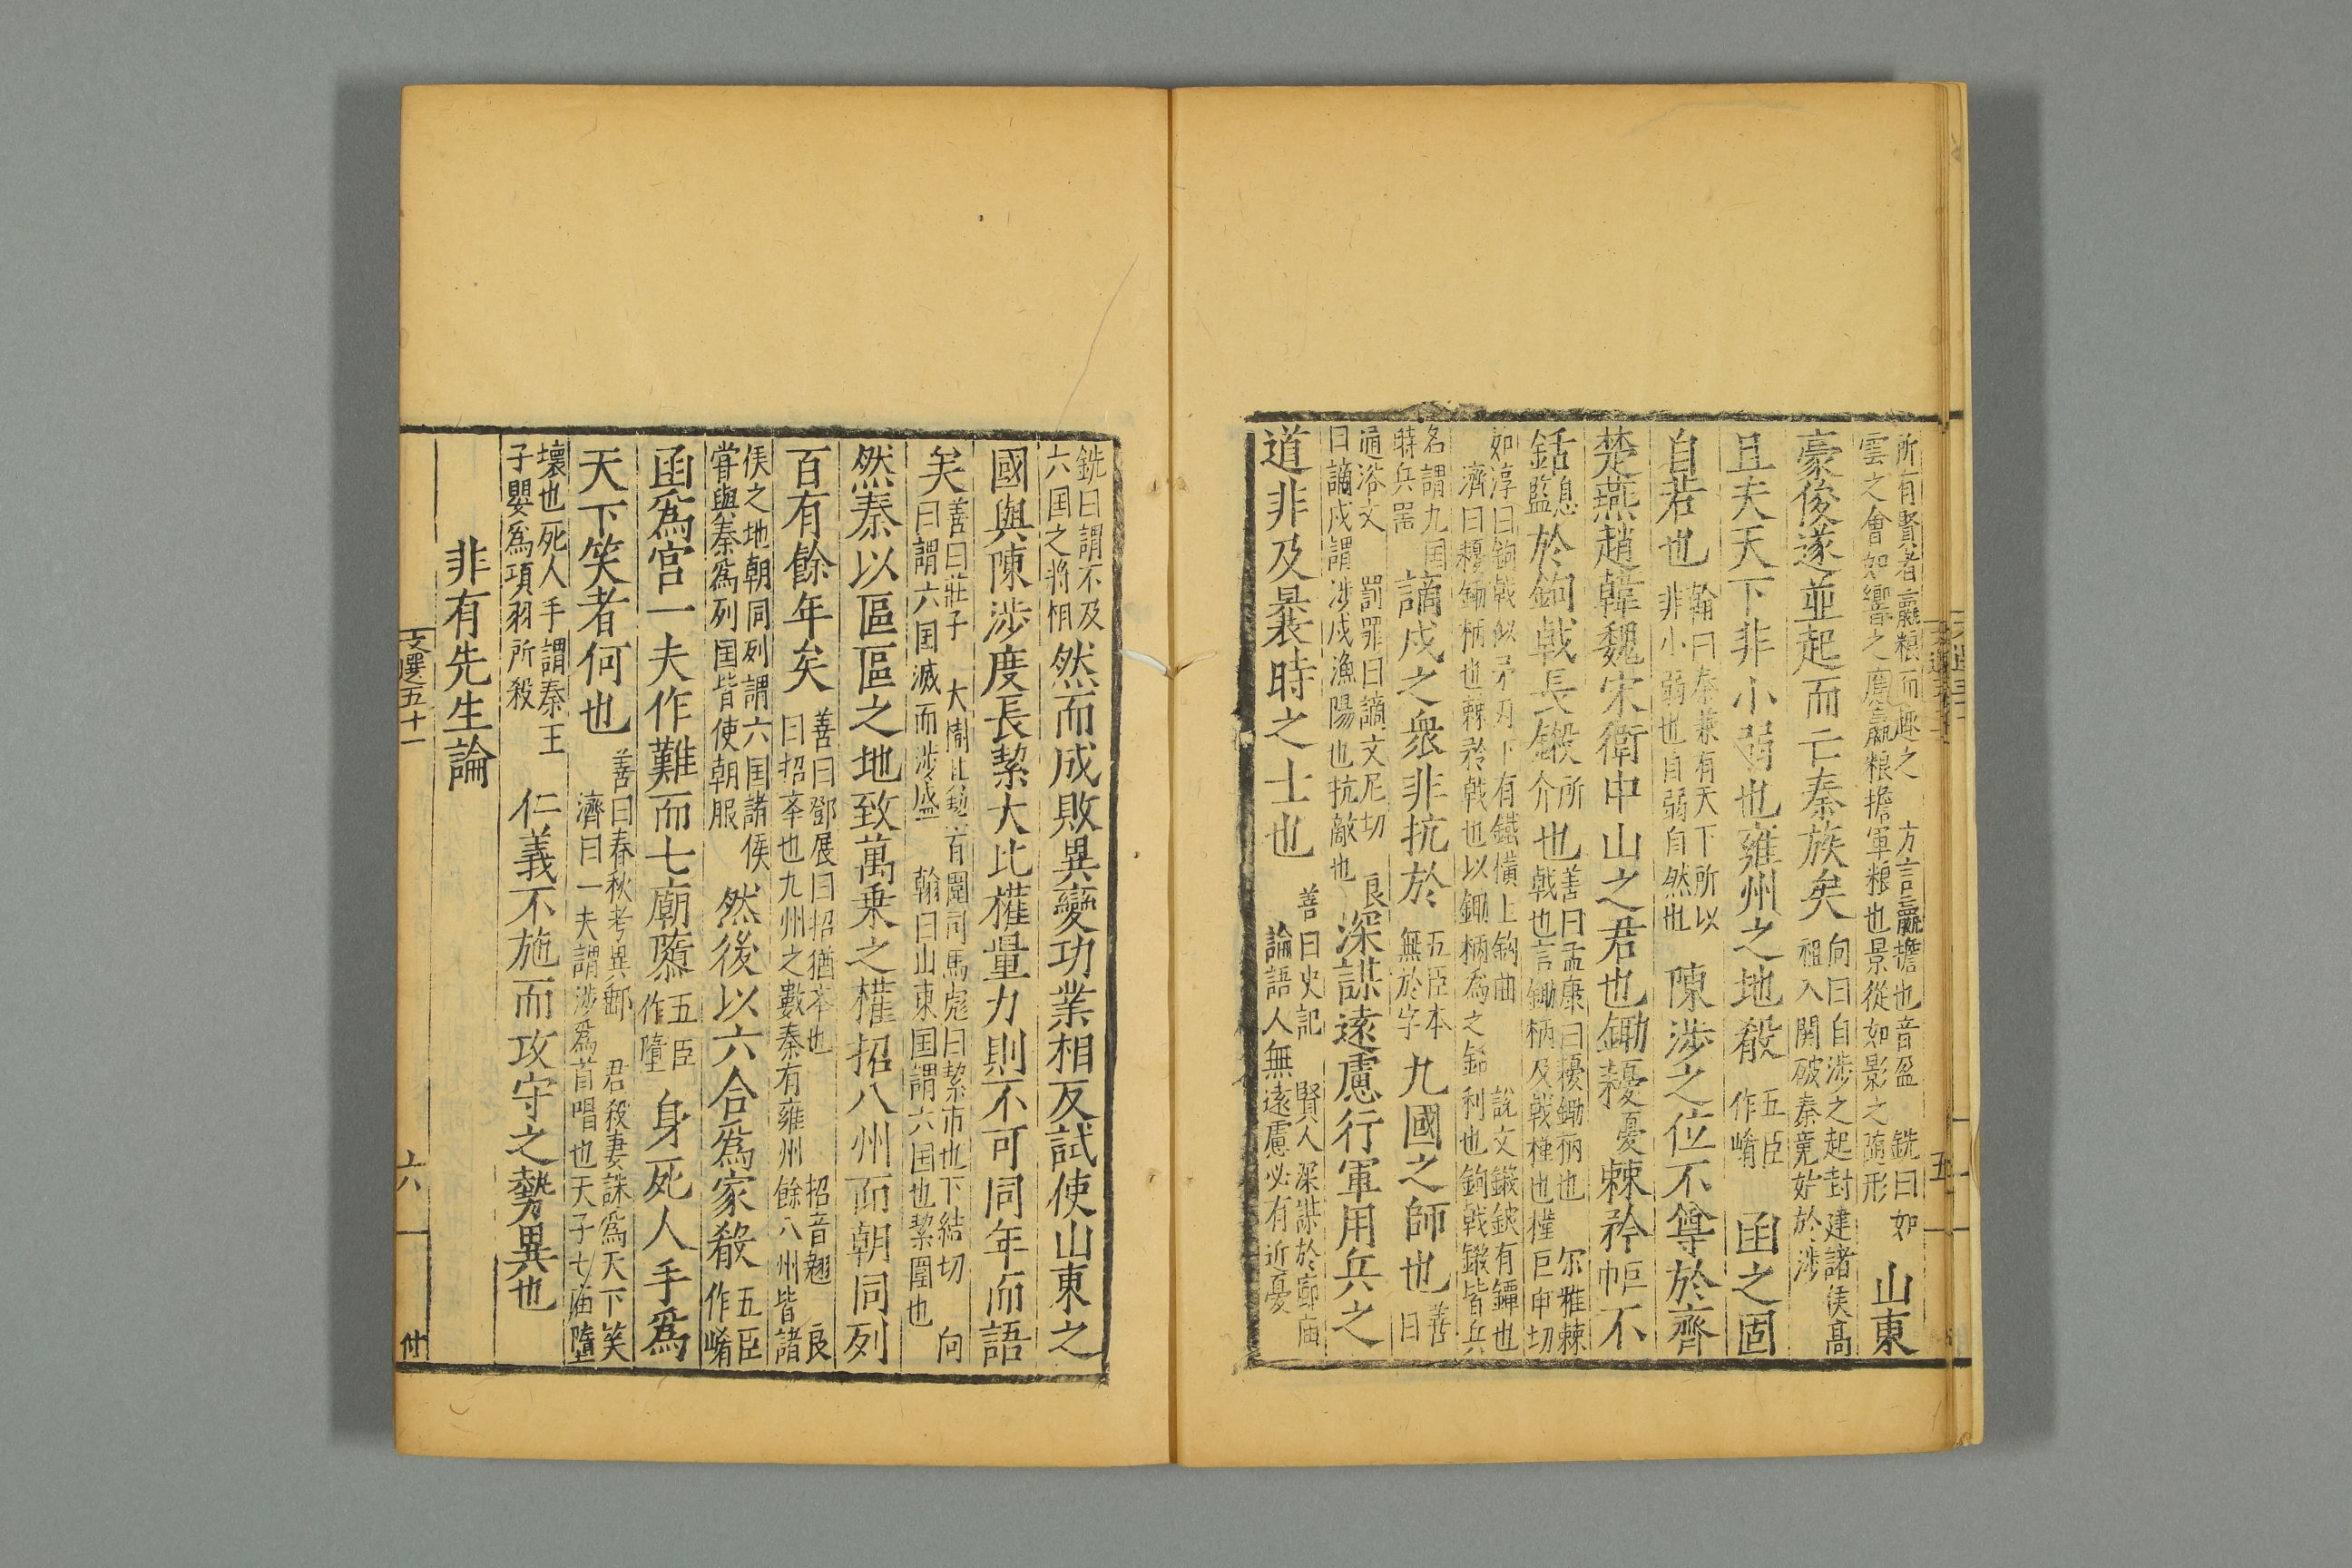 所有賢者贏粮而趣之　方言贏擔也音盈　銑曰如
雲之會如響之應贏粮擔軍粮也景從如影之随形　山東
豪俊遂並起而亡秦族矣　向曰自涉之起封建諸侯高
祖入関破秦竟始於涉
且夫天下非小弱也雍州之地殽　五臣作崤　函之固
自若也　翰曰秦兼有天下所以非小弱也自弱自然也　陳涉之位不尊於齊
楚燕趙韓魏宋衛中山之君也鋤耰　憂　棘矜　巾　不
銛　息監　於鉤戟長鎩　所介　也　善曰孟康曰耰鋤柄也　尔雅棘
戟也言鋤柄及戟槿也槿巨巾切
如淳曰鉤戟似矛刃下有鐵横上鉤曲　說文鎩鈹有鐔也
濟曰耰鋤柄也棘矜戟也以鋤柄為之銛利也鉤戟鎩皆兵
名謂九囯時兵噐　謫戍之衆非抗於　五臣本無於字　九國之師也　善曰
通俗文　罰罪曰謫丈尼切　良
曰謫戍謂涉戍漁陽也抗敵也　深謀遠慮行軍用兵之
道非及曩時之士也　善曰史記　賢人深謀於廊庙
論語人無遠慮必有近憂
銑曰謂不及六囯之將相　然而成敗異變功業相反試使山東之
國與陳涉度長絜大比權量力則不可同年而語
矣　善曰莊子　司馬彪曰絜帀也下結切　向
曰謂六囯滅而涉盛　翰曰山東囯謂六囯也絜圍也
然秦以區區之地致萬乗之權招八州而朝同列
百有餘年矣　善曰鄧展曰招猶舉也　招音翹　良
曰招舉也九州之數秦有雍州餘八州皆諸
侯之地朝同列謂六囯諸侯
甞與秦為列囯皆使朝服　然後以六合爲家殽　五臣作崤
函爲宮一夫作難而七廟隳　五臣作墮　身死人手爲
天下笑者何也　善曰春秋考異郵　君殺妻誅為天下笑
濟曰一夫謂涉爲首唱也天子七庙墮
壊也死人手謂秦王
子嬰爲項羽所殺　仁義不施而攻守之勢異也
非有先生論
文選五十一
六
付
五